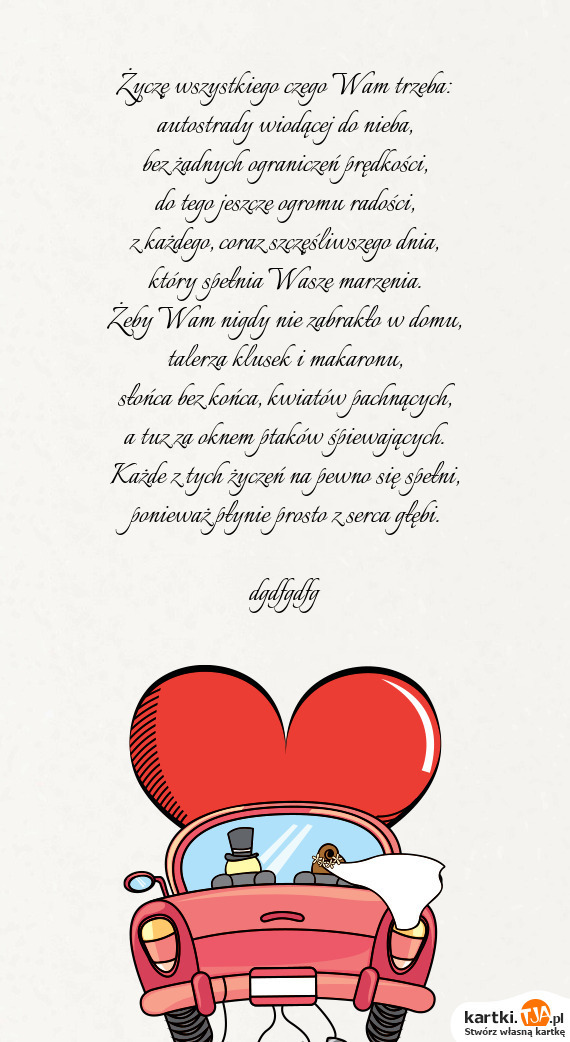 Życzę wszystkiego czego Wam trzeba:
autostrady wiodącej do nieba,
bez żadnych ograniczeń prędkości,
do tego jeszcze ogromu radości,
z każdego, coraz szczęśliwszego dnia,
który spełnia Wasze marzenia.
Żeby Wam nigdy nie zabrakło w domu,
talerza klusek i makaronu,
słońca bez końca, kwiatów pachnących,
a tuż za oknem ptaków śpiewających.
Każde z tych życzeń na pewno się spełni,
ponieważ płynie prosto z serca głębi.
dgdfgdfg
kartki.TJA.pl
Stwórz własną kartkę